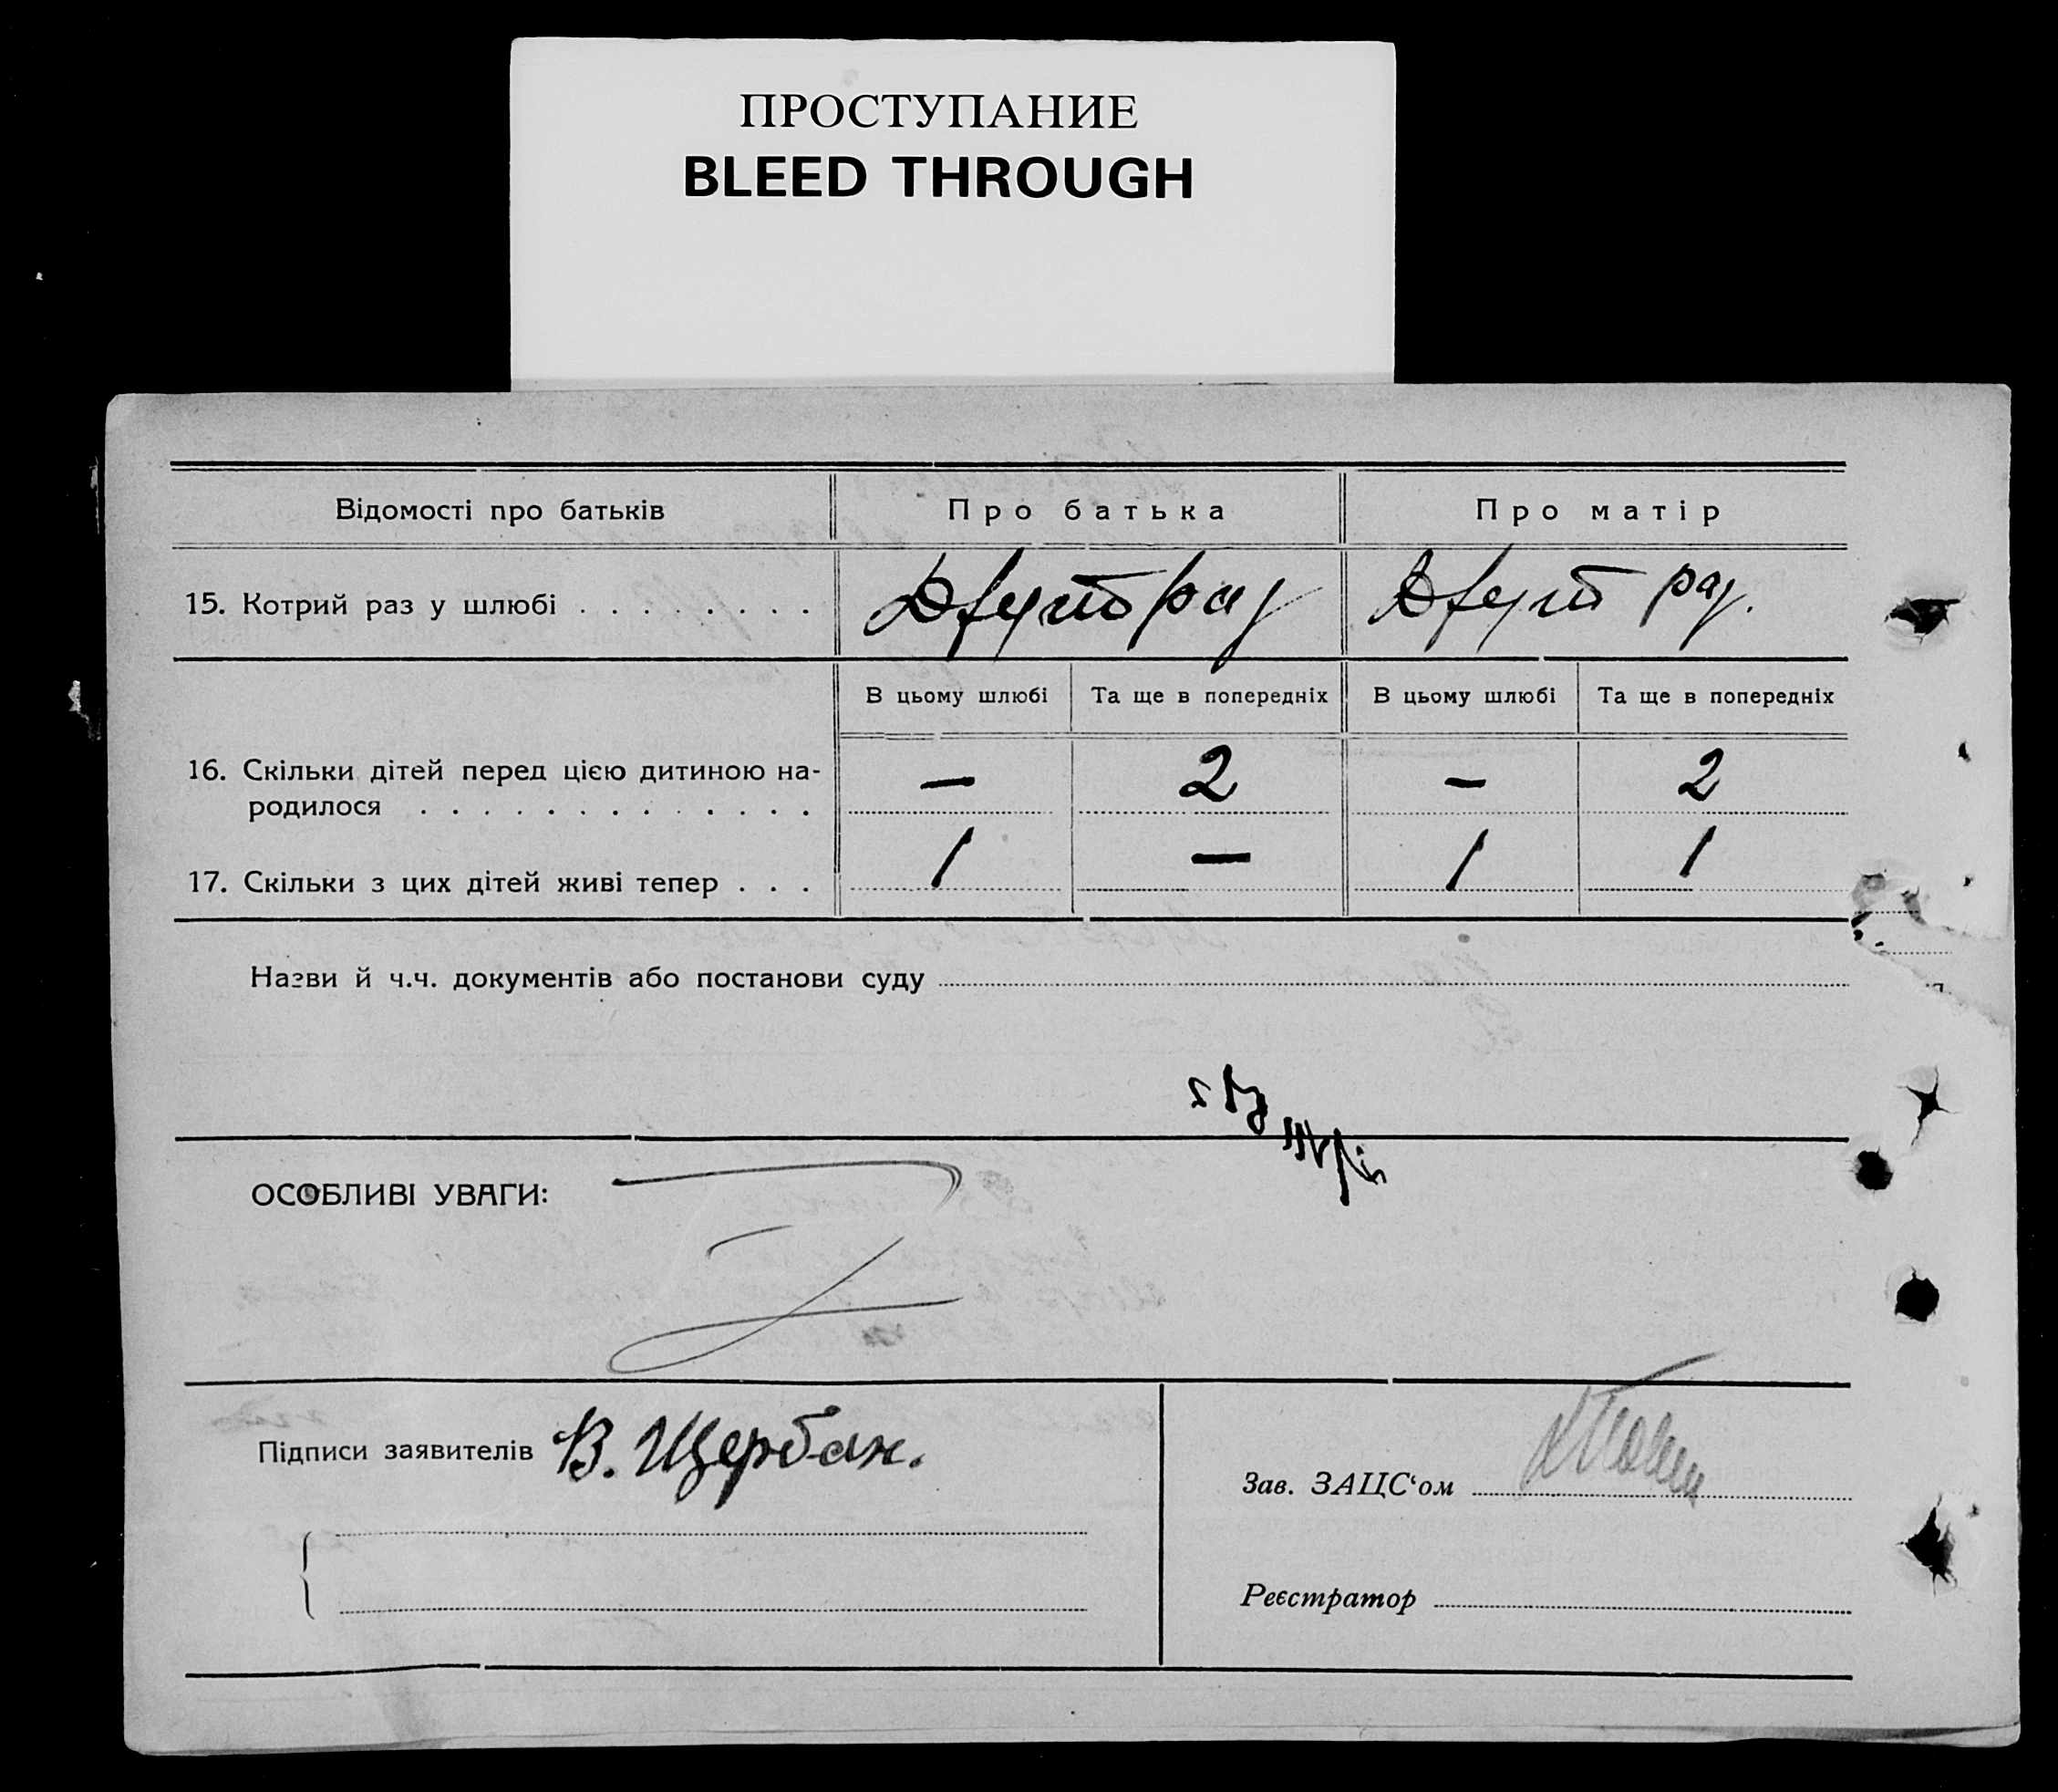 ПРОСТУПАНИЕ
BLEED THROUGH
Відомості про батьків Про батька Про матір
15. Котрий раз у шлюбі . . . . . . . . Другий раз Другий раз.
В цьому шлюбі Та ще в попередніх В цьому шлюбі Та ще в попередніх
16. Скільки дітей перед цією дитиною на- — 2 — 2
родилося . . . . . . . . . . . . .
17. Скільки з цих дітей живі тепер . . . 1 — 1 1
Назви й ч.ч. документів або постанови суду
ОСОБЛИВІ УВАГИ:
Підписи заявителів В. Щербак.
Зав. ЗАЦС‘ом
Реєстратор